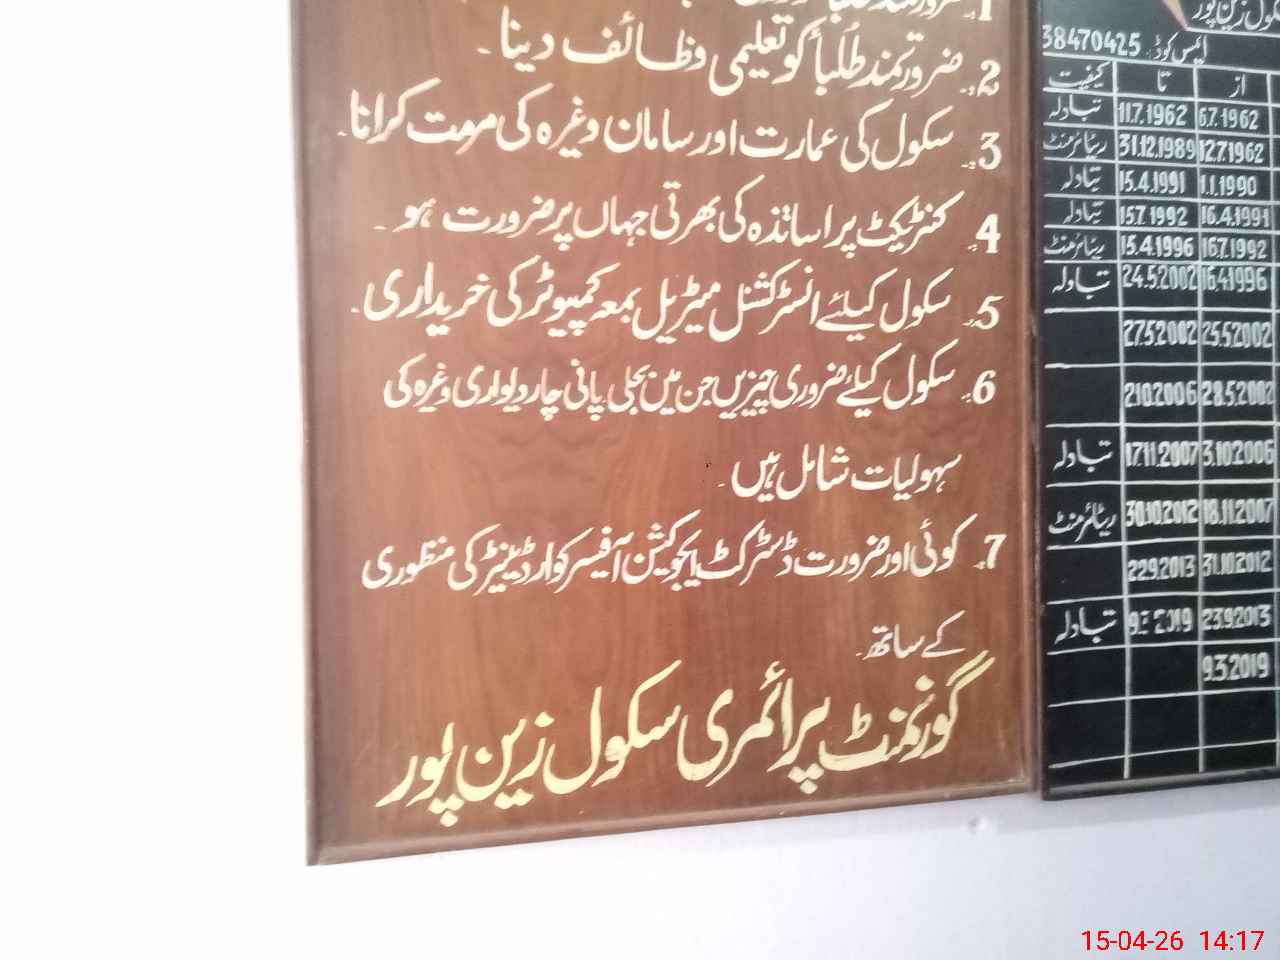 2۔ ضرورتمند طلبأ کو تعلیمی وظائف دینا۔
3۔ سکول کی عمارت اور سامان وغیرہ کی مرمت کرانا۔
4۔ کنٹریکٹ پر اساتذہ کی بھرتی جہاں پر ضرورت ہو۔
5۔ سکول کیلئے انسٹرکشنل میٹریل بمعہ کمپیوٹر کی خریداری۔
6۔ سکول کیلئے ضروری چیزیں جن میں بجلی پانی چاردیواری وغیرہ کی
سہولیات شامل ہیں۔
7۔ کوئی اور ضرورت ڈسٹرکٹ ایجوکیشن آفیسر کوارڈینیٹر کی منظوری
کے ساتھ۔
گورنمنٹ پرائمری سکول زین پور
سکول زین پور
ایمس کوڈ: 38470425
از تا کیفیت
6.7.1962 11.7.1962 تبادلہ
12.7.1962 31.12.1989 ریٹائرمنٹ
1.1.1990 15.4.1991 تبادلہ
16.4.1991 15.7.1992 تبادلہ
16.7.1992 15.4.1996 ریٹائرمنٹ
16.4.1996 24.5.2002 تبادلہ
25.5.2002 27.5.2002
28.5.2002 2.10.2006
3.10.2006 17.11.2007 تبادلہ
18.11.2007 30.10.2012 ریٹائرمنٹ
31.10.2012 22.9.2013
23.9.2013 2019 تبادلہ
9.3.2019
15-04-26 14:17